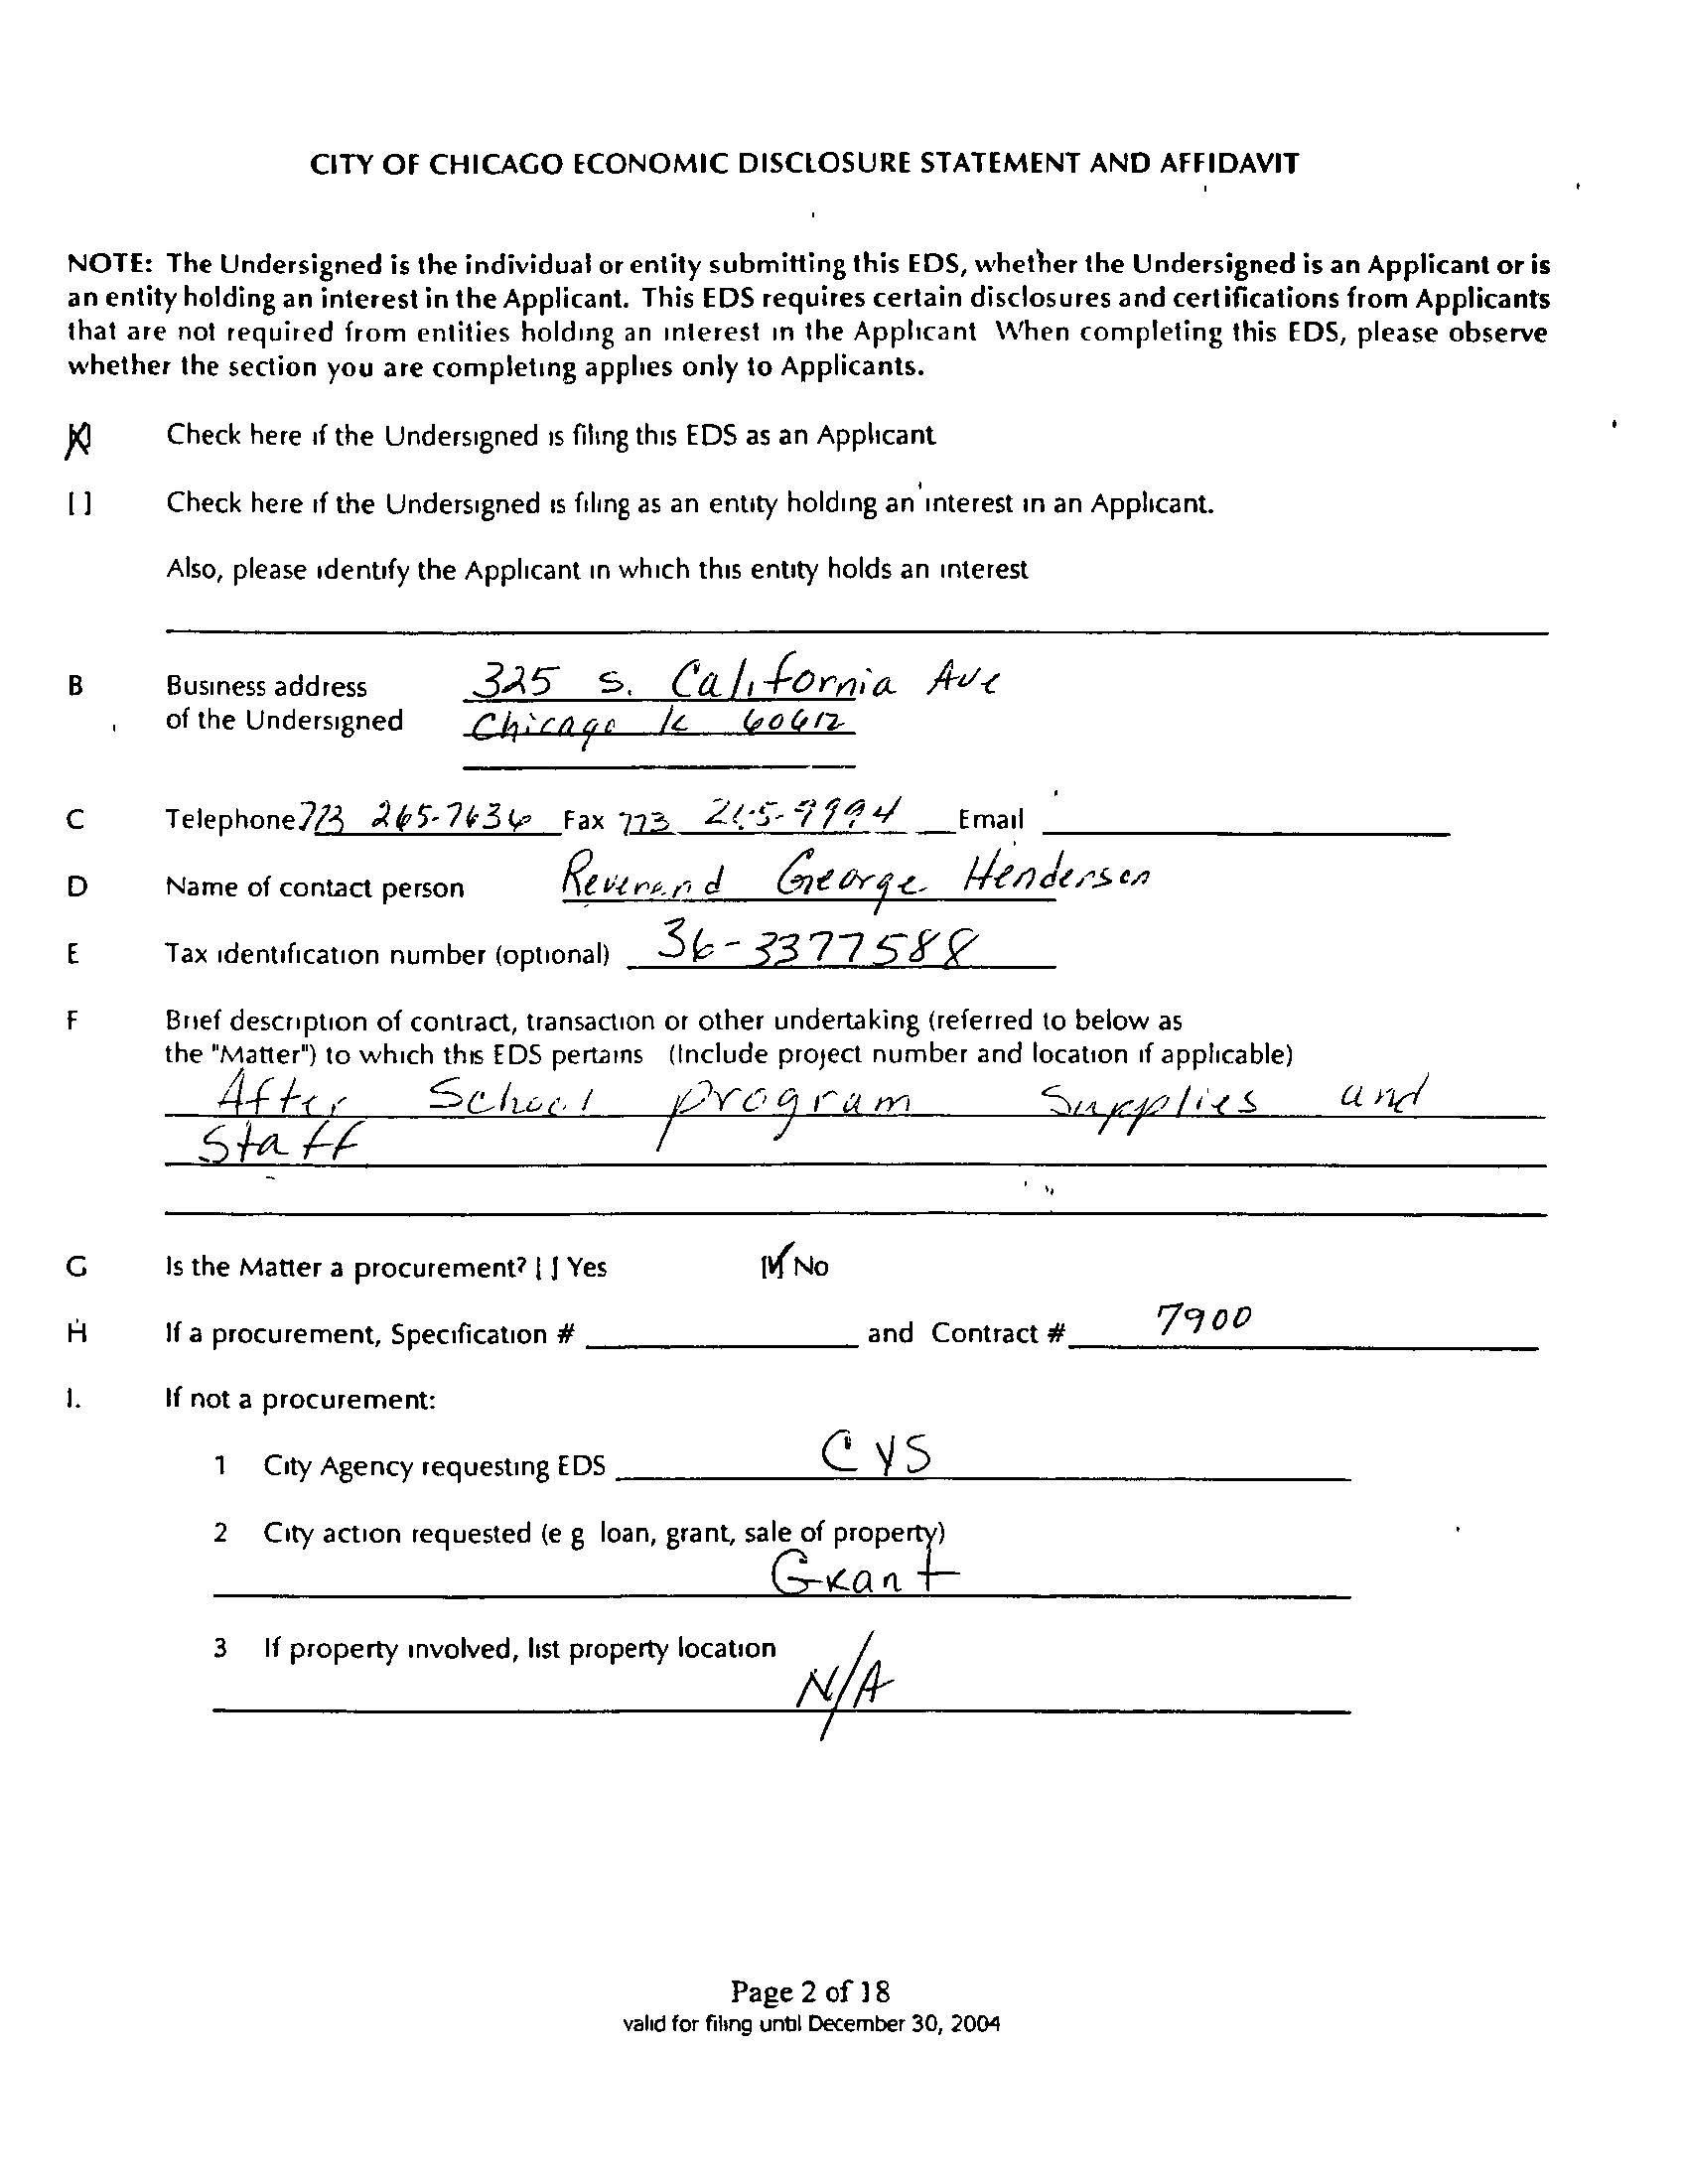 CITY OF CHICAGO ECONOMIC DISCLOSURE STATEMENT AND AFFIDAVIT
NOTE: The Undersigned is the individual or entity submitting this EDS, whether the Undersigned is an Applicant or is
an entity holding an interest in the Applicant. This EDS requires certain disclosures and certifications from Applicants
that are not required from entities holding an interest in the Applicant When completing this EDS, please observe
whether the section you are completing applies only to Applicants.
[X] Check here if the Undersigned is filing this EDS as an Applicant
[ ] Check here if the Undersigned is filing as an entity holding an interest in an Applicant.
Also, please identify the Applicant in which this entity holds an interest
B Business address 325 S. California Ave
of the Undersigned Chicago IL 60612
C Telephone 773 265-7636 Fax 773 265-9994 Email
D Name of contact person Reverend George Henderson
E Tax identification number (optional) 36-3377588
F Brief description of contract, transaction or other undertaking (referred to below as
the "Matter") to which this EDS pertains (Include project number and location if applicable)
After School program Supplies and
Staff
G Is the Matter a procurement? [ ] Yes [✓] No
H If a procurement, Specification # and Contract # 7900
I. If not a procurement:
1 City Agency requesting EDS CYS
2 City action requested (e g loan, grant, sale of property)
Grant
3 If property involved, list property location
N/A
Page 2 of 18
valid for filing until December 30, 2004